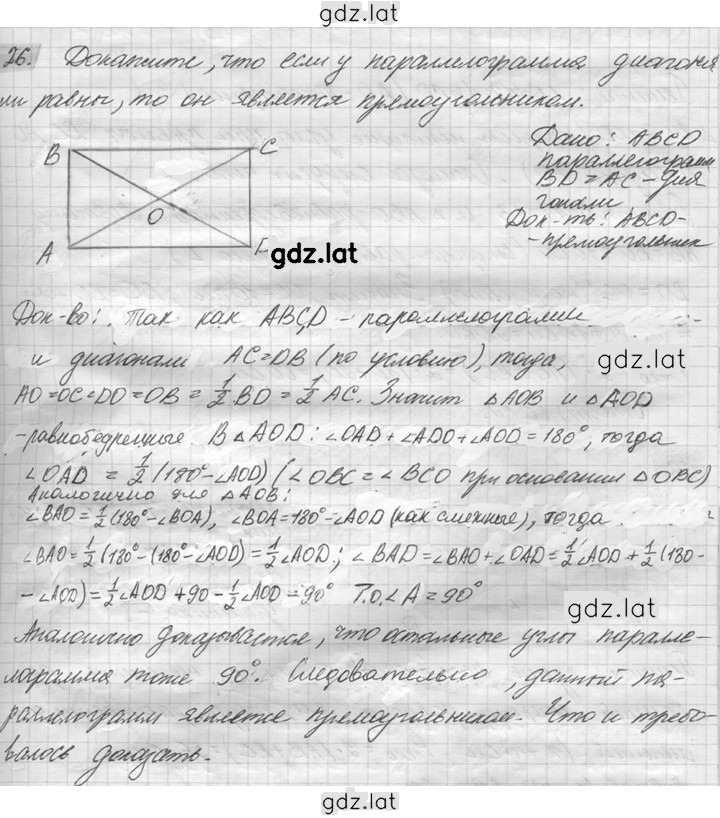 gdz.lat
26. Докажите, что если у параллелограмма диагона
ли равны, то он является прямоугольником.
B
C
O
A
Дано: ABCD
параллелограмм
BD = AC – диа
гонали
Док-ть: ABCD –
– прямоугольник
gdz.lat
Док-во: Так как ABCD – параллелограмм
и диагонали AC=DB (по условию), тогда,
gdz.lat
AO=OC=DO=OB = 1/2 BD = 1/2 AC. Значит △AOB и △AOD
-равнобедренные. В △AOD: ∠OAD+∠ADO+∠AOD = 180°, тогда
∠OAD = 1/2 (180°-∠AOD) (∠OBC = ∠BCO при основании △OBC)
Аналогично для △AOB:
∠BAO = 1/2 (180°-∠BOA), ∠BOA=180°-∠AOD (как смежные), тогда
∠BAO = 1/2 (180°-(180°-∠AOD) = 1/2 ∠AOD.; ∠BAD = ∠BAO+∠OAD = 1/2 ∠AOD + 1/2 (180-
-∠AOD) = 1/2 ∠AOD + 90 - 1/2 ∠AOD = 90° Т.о. ∠A = 90°
gdz.lat
Аналогично доказывается, что остальные углы паралле-
лограмма тоже 90°. Следовательно, данный па-
раллелограмм является прямоугольником. Что и требо-
валось доказать.
gdz.lat